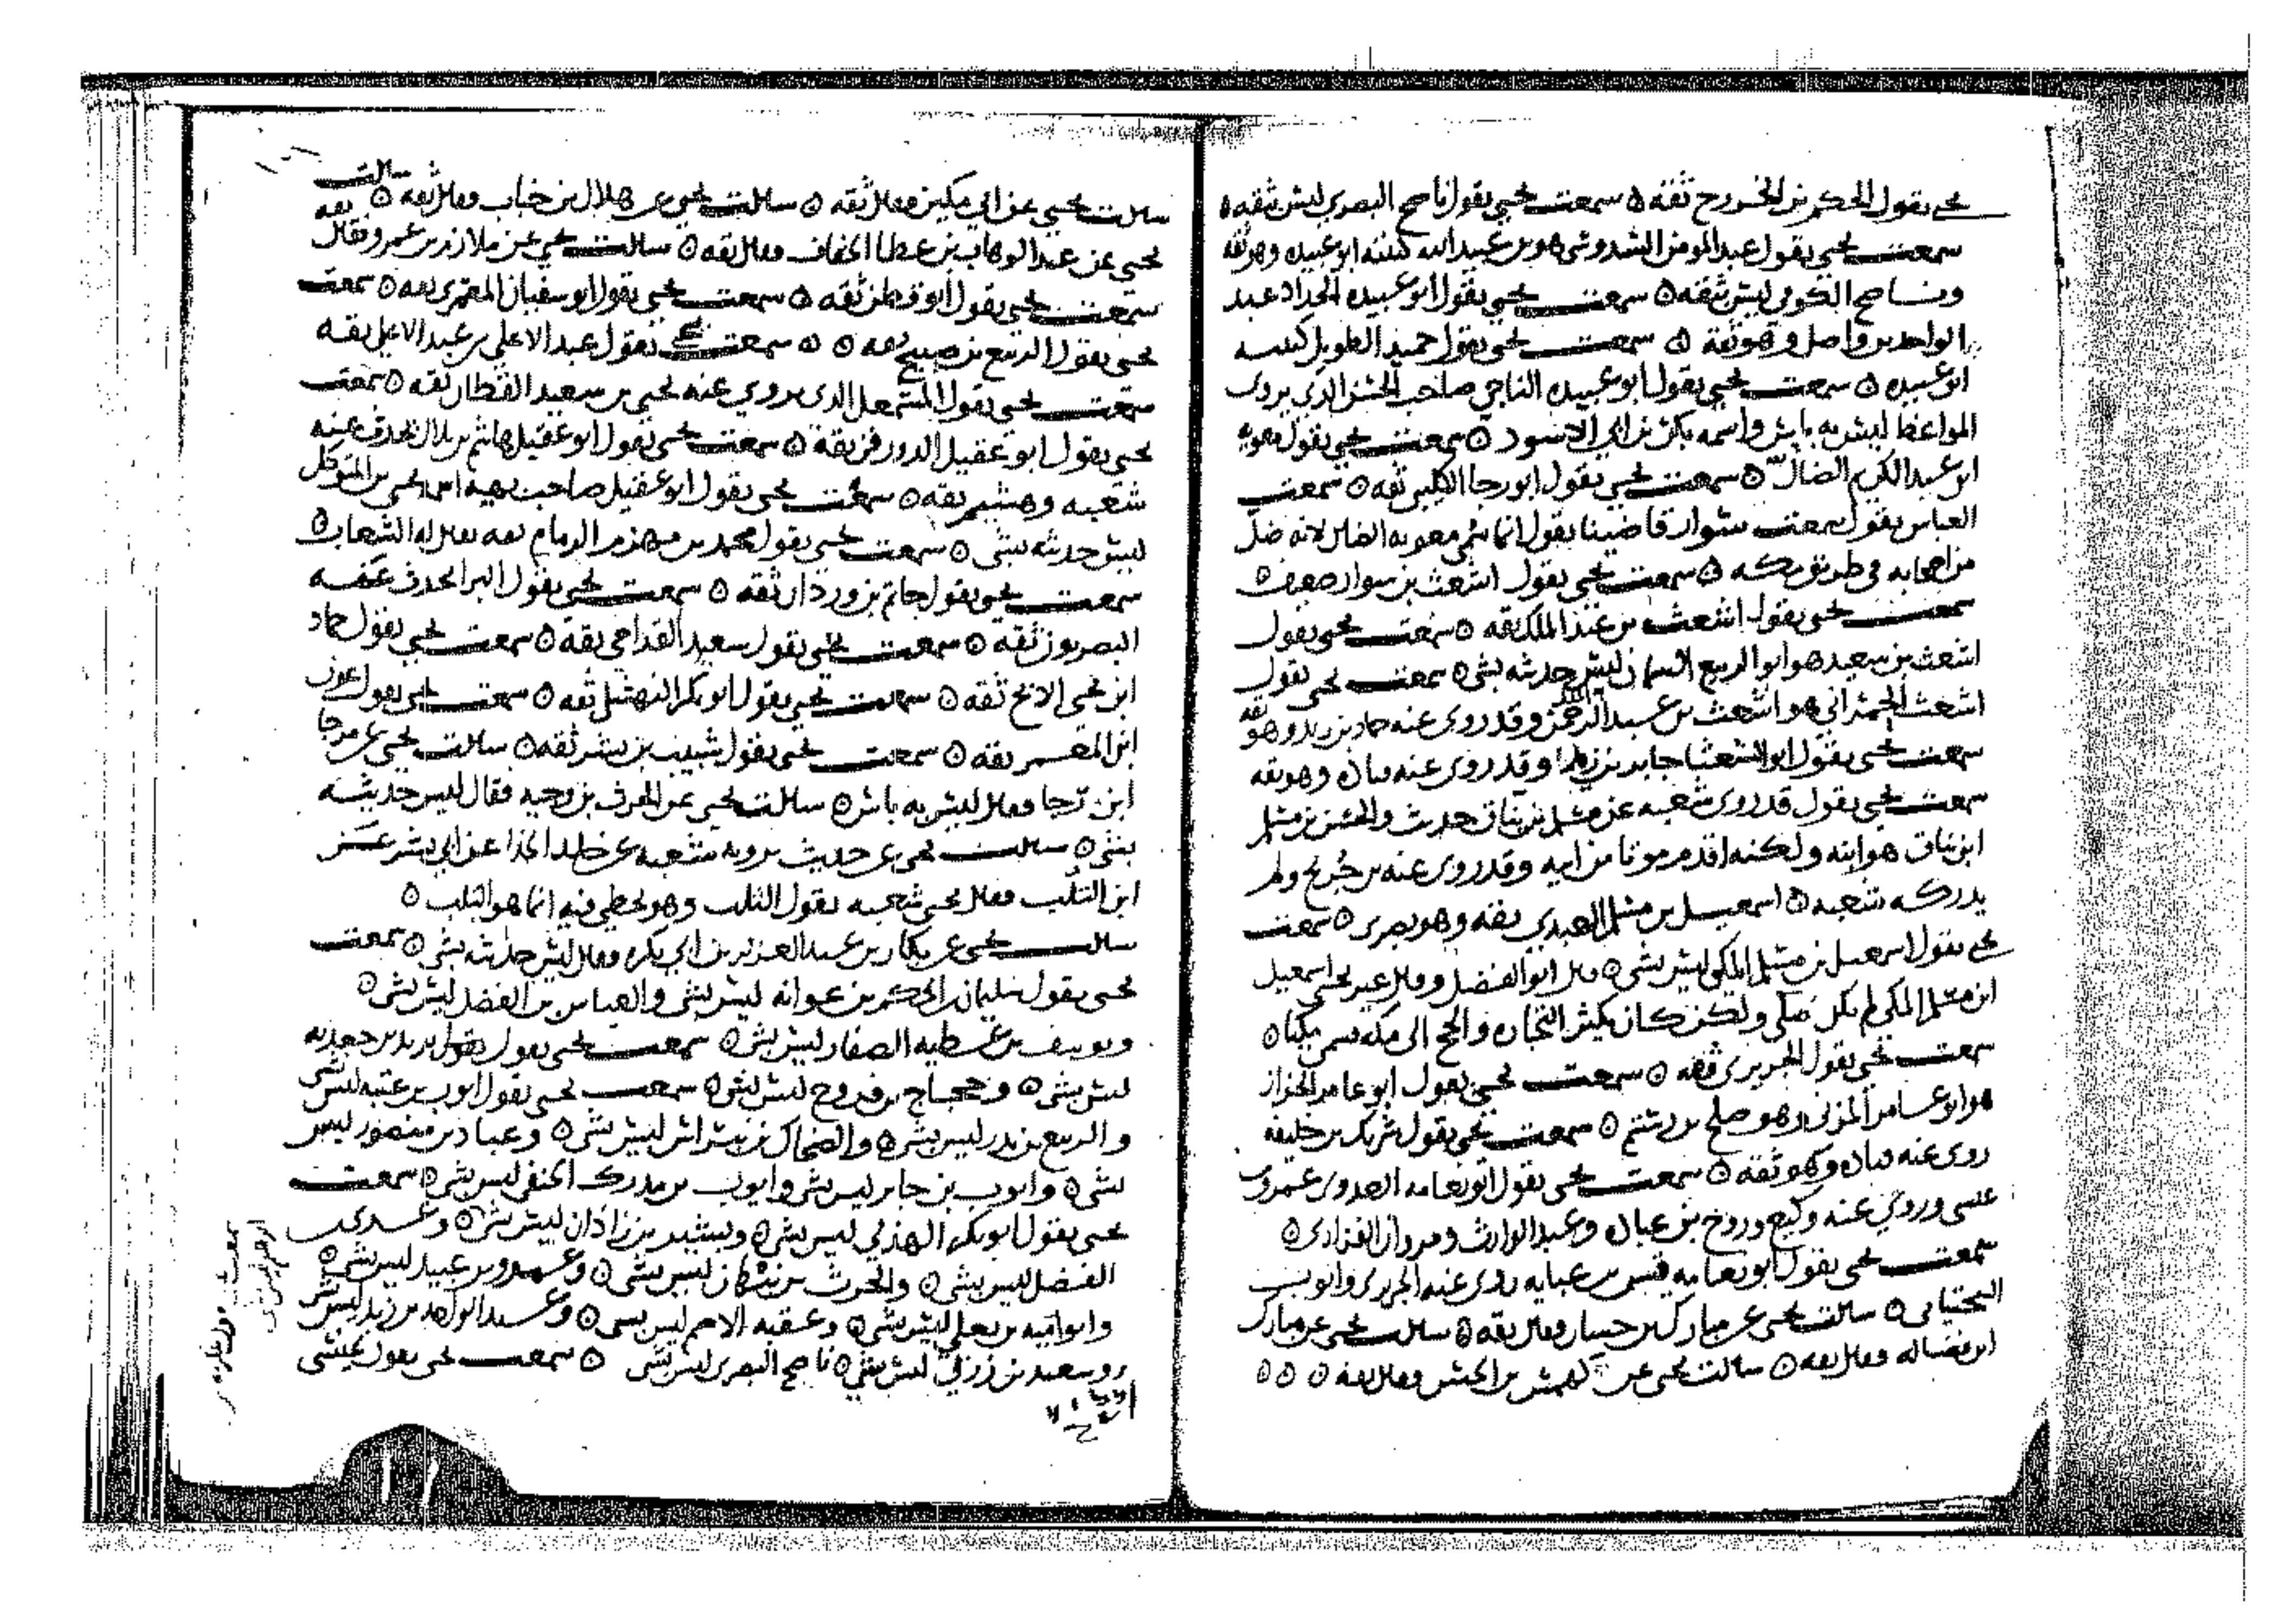 يحيى يقول الحكم بن الخزرج ثقه ٥ سمعت يحيى يقول ناصح البصري ليس بثقه ٥
سمعت يحيى يقول عبد المومن السدوسي هو بن عبيد الله كنيته ابو عبيده وهو ثقه
وناصح الكوفي ليس بثقه ٥ سمعت يحيى يقول ابو عبيده الحداد عبد
الواحد بن واصل وهو ثقة ٥ سمعت يحيى يقول حميد الطويل كنيته
ابو عبيده ٥ سمعت يحيى يقول ابو عبيده الناجي صاحب الحسن الذي يروي
المواعظ ليس به باس واسمه بكر بن ابي الاسود ٥ سمعت يحيى يقول معويه
ابن عبد الكريم الضال ٥ سمعت يحيى يقول ابو رجا الكلبي ثقه ٥ سمعت
العباس يقول سمعت سوار قاضينا يقول انما سمي معويه الضال لانه ضل
من اصحابه في طريق مكه ٥ سمعت يحيى يقول اشعث بن سوار ضعيف ٥
سمعت يحيى يقول اشعث بن عبد الملك ثقه ٥ سمعت يحيى يقول
اشعث بن سعيد هو ابو الربيع السمان ليس حديثه بشي ٥ سمعت يحيى يقول
اشعث الحمراني هو اشعث بن عبد الملك وقد روى عنه حماد بن زيد وهو ثقه
سمعت يحيى يقول ابو الشعثا جابر بن زيد وقد روى عنه وهو ثقه
سمعت يحيى يقول قد روى شعبه عن مسلم بن يناق حديث والحسن بن مسلم
ابن يناق هو ابنه ولكنه اقدم موتا من ابيه وقد روى عنه بن جريج ولم
يدركه شعبه ٥ اسمعيل بن مسلم العبدي ثقه وهو بصرى ٥ سمعت
يحيى يقول اسمعيل بن مسلم المكي ليس بشي ٥ قال ابو الفضل وقال غير يحيى اسمعيل
ابن مسلم المكي لم يكن مكي ولكن كان يكثر التجاره والحج الى مكه فسمي مكيا ٥
سمعت يحيى يقول الجريري ثقه ٥ سمعت يحيى يقول ابو عامر الخزاز
هو ابو عامر المزني وهو صلح بن رستم ٥ سمعت يحيى يقول شريك بن خليفه
روى عنه وهو ثقه ٥ سمعت يحيى يقول ابو نعامه العدوى عمرو بن
عيسى وروى عنه وكيع وروح بن عباده وعبد الوارث ومروان الفزاري ٥
سمعت يحيى يقول ابو نعامه قيس بن عبايه روى عنه الجريري وايوب
السختياني ٥ سالت يحيى عن مبارك بن حسان فقال ثقه ٥ سالت يحيى عن مبارك
ابن فضاله فقال ثقه ٥ سالت يحيى عن كهمس بن الحسن فقال ثقه ٥ ٥ ٥
سالت يحيى عن ابي مكين فقال ثقه ٥ سالت يحيى عن هلال بن خباب فقال ثقه ٥ سالت
يحيى عن عبد الوهاب بن عطا الخفاف فقال ثقه ٥ سالت يحيى عن ملازم بن عمرو فقال ثقه
سمعت يحيى يقول ابو قطن ثقه ٥ سمعت يحيى يقول ابو سفيان المعمري ثقه ٥ سمعت
يحيى يقول الربيع بن صبيح ثقه ٥ ٥ سمعت يحيى يقول عبد الاعلى بن عبد الاعلى ثقه
سمعت يحيى يقول المشمعل الذي يروي عنه يحيى بن سعيد القطان ثقه ٥ سمعت
يحيى يقول ابو عقيل الدورقي ثقة ٥ سمعت يحيى يقول ابو عقيل هاشم بن بلال يحدث عنه
شعبه وهشيم ثقه ٥ سمعت يحيى يقول ابو عقيل صاحب بهيه اسمه يحيى بن المتوكل
ليس حديثه بشي ٥ سمعت يحيى يقول محمد بن مهزم الزمام ثقه يقال له الشعاب ٥
سمعت يحيى يقول حاتم بن وردان ثقه ٥ سمعت يحيى يقول البرا الذي يحدث عنه
البصريون ثقه ٥ سمعت يحيى يقول سعيد القداحي ثقة ٥ سمعت يحيى يقول حماد
ابن يحيى الابح ثقه ٥ سمعت يحيى يقول ابو بكر النهشلي ثقه ٥ سمعت يحيى يقول عون
ابن المعمر ثقه ٥ سمعت يحيى يقول شبيب بن بشر ثقه ٥ سالت يحيى عن مرجا
ابن رجا فقال ليس به باس ٥ سالت يحيى عن الحرث بن وجيه فقال ليس حديثه
بشي ٥ سالت يحيى عن حديث يرويه شعبه عن خلد الحذا عن ابي بشر عن
ابن التلب فقال يحيى شعبه يقول الثلب وهو يخطي فيه انما هو التلب ٥
سالت يحيى عن بكار بن عبد العزيز بن ابي بكره فقال ليس حديثه بشي ٥ سمعت
يحيى يقول سليمان بن الحكم بن عوانه ليس بشي والعباس بن الفضل ليس بشي ٥
ويوسف بن عطيه الصفار ليس بشي ٥ سمعت يحيى يقول يزيد بن جعدبه
ليس بشي ٥ وحجاج بن فروخ ليس بشي ٥ سمعت يحيى يقول ايوب بن عتبه ليس بشي
والربيع بن بدر ليس بشي ٥ والضحاك بن نبراس ليس بشي ٥ وعباد بن منصور ليس
بشي ٥ وايوب بن جابر ليس بشي وايوب بن مدرك الحنفي ليس بشي ٥ سمعت
يحيى يقول ابو بكر الهذلي ليس بشي ٥ وبشير بن زاذان ليس بشي ٥ وعدي بن
الفضل ليس بشي ٥ والحرث بن نبهان ليس بشي ٥ وعمرو بن عبيد ليس بشي ٥
وابو اميه بن يعلى ليس بشي ٥ وعقبه الاصم ليس بشي ٥ وعبد الواحد بن زيد ليس بشي
وسعيد بن زربي ليس بشي ٥ ناصح البصري ليس بشي ٥ سمعت يحيى يقول عيسى